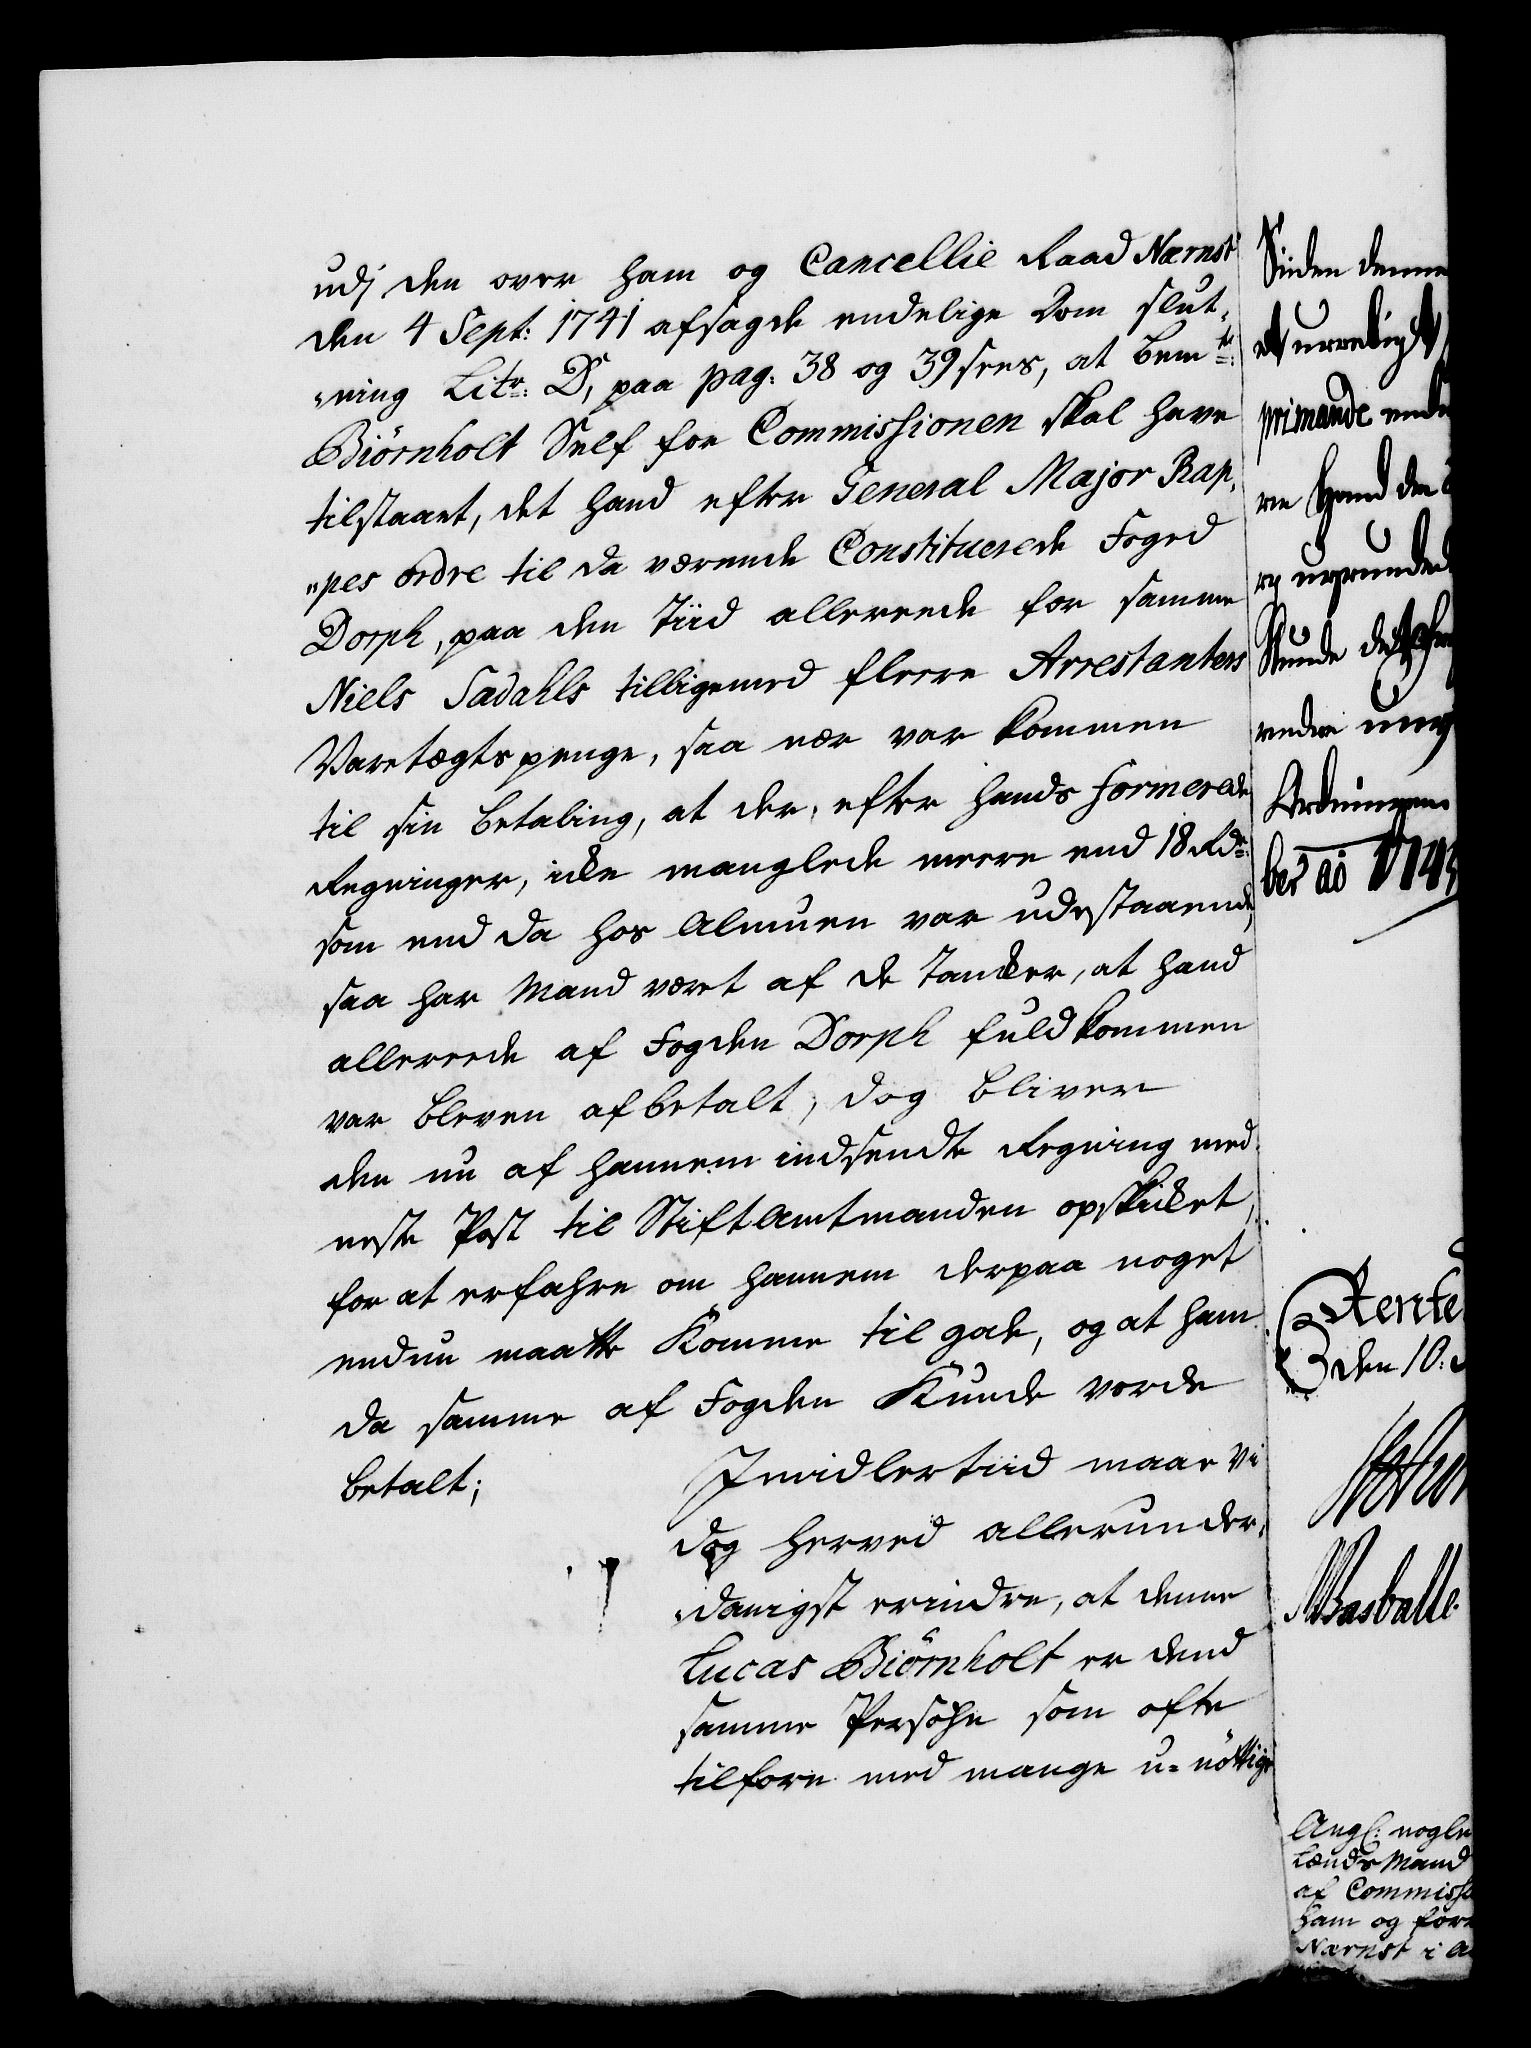 udj den over ham og Cancellie Raad Nærnst
den 4 Sept: 1741 afsagde endelige Dom slut-
"ning Litr: D, paa pag: 38 og 39 sees, at bemte:
Biörnholt Self for Commissionen skal have
tilstaaet, det hand efter General Major Rap-
"pes ordre til da værende Constituerede Foged
Dorph, paa den Tiid allereede for samme
Niels Sadahls tilligemed fleere Arrestanters
Varetægtspenge, saa nær var kommen
til sin betaling, at der, efter hands formerede
Regninger, icke manglede meere end 18 Rdr:
som end da hos Almuen var udestaaende,
saa har Mand været af de Tancker, at hand
allereede af Fogden Dorph fuldkommen
var bleven afbetalt, dog bliver
den nu af hannem indsendte Regning med
neste Post til Stiftamtmanden opskicket,
for at erfahre om hannem derpaa noget
endnu maatte Komme til gode, og at ham
da samme af Fogden Kunde vorde
betalt;
Jmidlertiid maae Vi
dog herved allerunder-
"danigst erindre, at denne
Lucas Biörnholt er dend
samme Persohn som ofte
tilforn med mange u-nöttige
Siden denne
primande
Hand den
Kunde
Ordningen
ber ao 174
Rente
den 10:
Basballe
Angl: nogle
Lænds Mand
af Commissi
ham og for
Nærnst i A